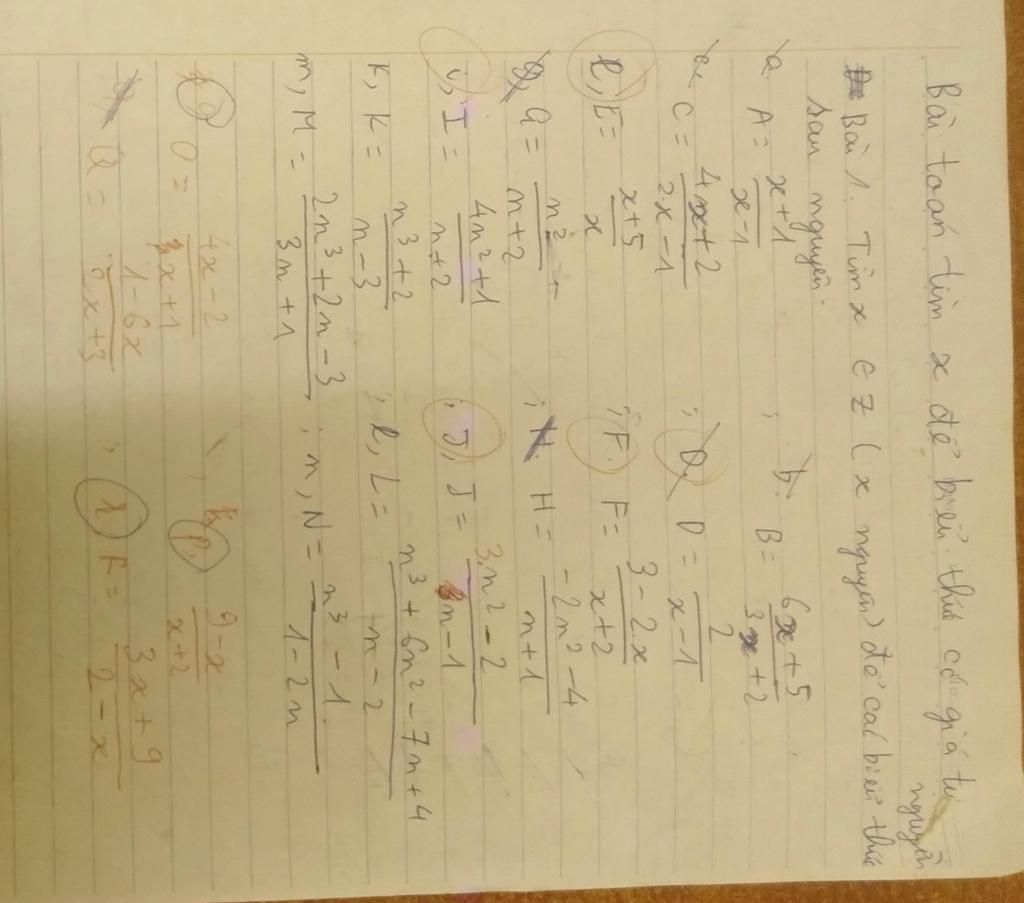 Bài toán tìm x để biểu thức có giá trị
nguyên
Bài 1. Tìm x ∈ Z (x nguyên) để các biểu thức
sau nguyên.
a. A = x+1/x-1 ; b. B = 6x+5/3x+2
c, C = 4x+2/2x-1 ; D, D = 2/x-1
e, E = x+5/x ; F. F = 3-2x/x+2
G = n²/n+2 ; H. H = -2n²-4/n+1
i, I = 4n²+1/n+2 ; J, J = 3n²-2/n-1
K, K = n³+2/n-3 ; l, L = n³+6n²-7n+4/n-2
m, M = 2n³+2n-3/3n+1 ; n, N = n³-1/1-2n
O = 4x-2/x+1 , p, 9-x/x+2
Q = 1-6x/x+3 ; R = 3x+9/2-x